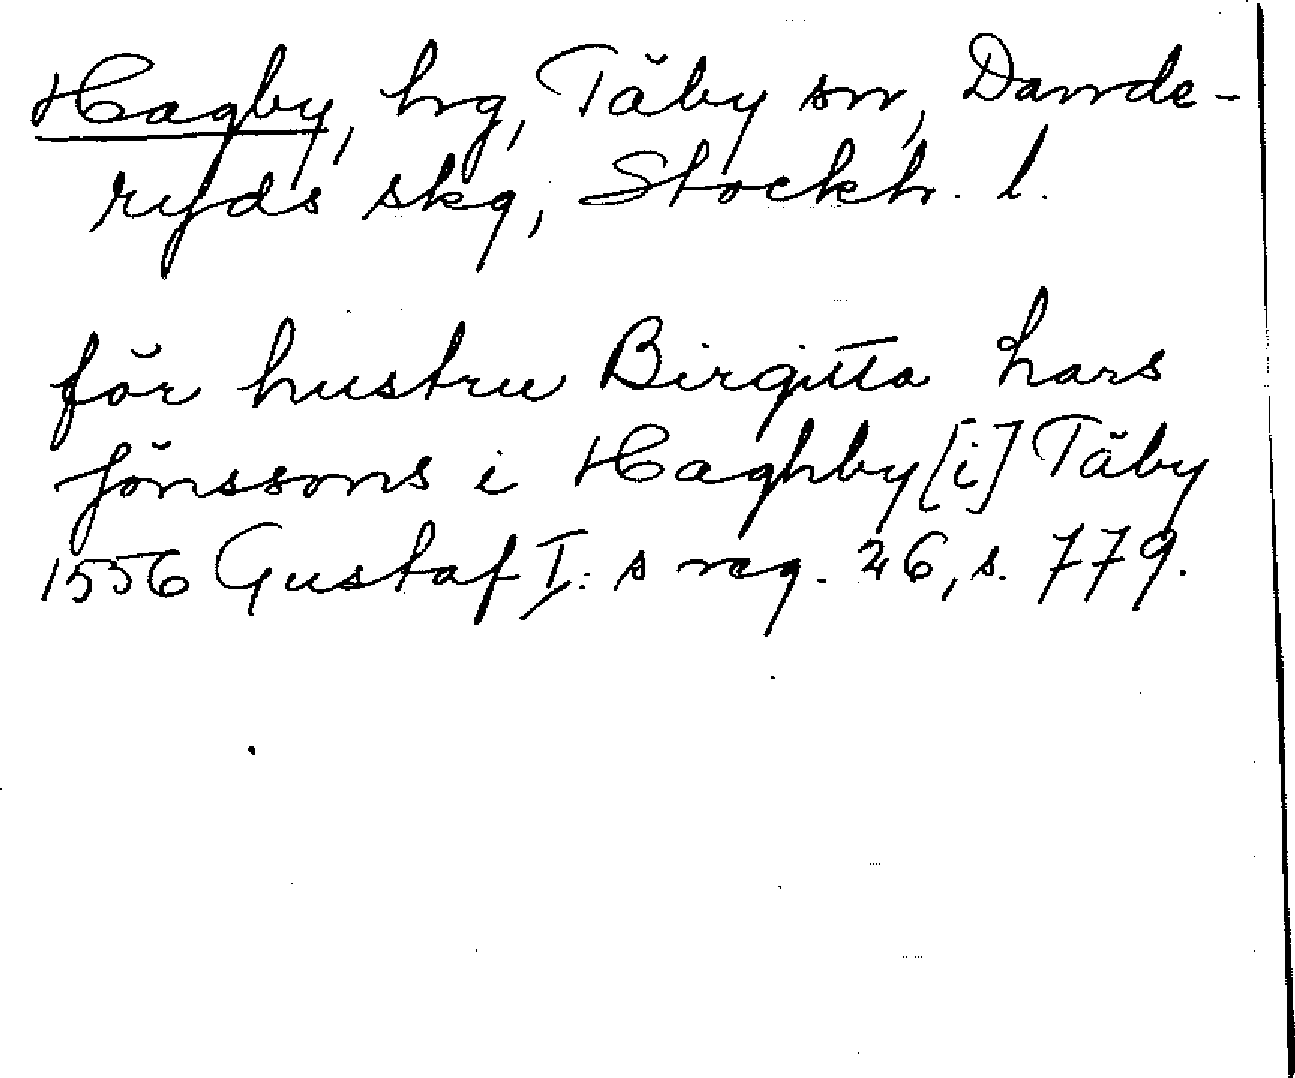 Hagby, hg, Täby sn, Dande-
ryds skg, Stockh. l.
för hustru Birgitta hars
Jönssons i Haghby [i] Täby
1556 Gustaf I:s reg. 26, s. 779.